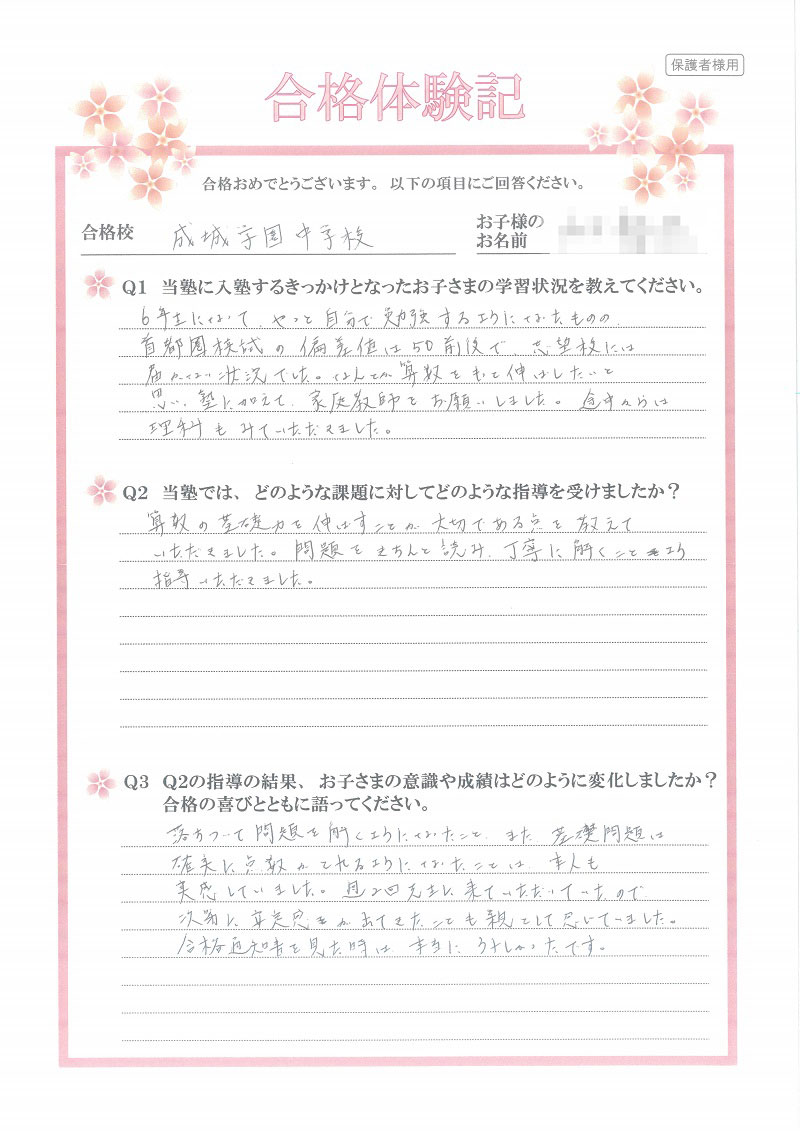 保護者様用
合格体験記
合格おめでとうございます。以下の項目にご回答ください。
合格校 成城学園中学校
お子様の
お名前
Q1 当塾に入塾するきっかけとなったお子さまの学習状況を教えてください。
6年生になって、やっと自分で勉強するようになったものの、
首都圏模試の偏差値は50前後で、志望校には
届かない状況でした。なんとか算数をもっと伸ばしたいと
思い、塾に加えて、家庭教師をお願いしました。途中からは
理科もみていただきました。
Q2 当塾では、どのような課題に対してどのような指導を受けましたか？
算数の基礎力を伸ばすことが大切である点を教えて
いただきました。問題をきちんと読み、丁寧に解くことより
指導いただきました。
Q3 Q2の指導の結果、お子さまの意識や成績はどのように変化しましたか？
合格の喜びとともに語ってください。
落ちついて問題を解くようになったこと、また基礎問題は
確実に点数がとれるようになったことは本人も
実感していました。週2回先生に来ていただいていたので
次第に安定感もが出てきたことも親として感じていました。
合格通知書を見た時は本当にうれしかったです。